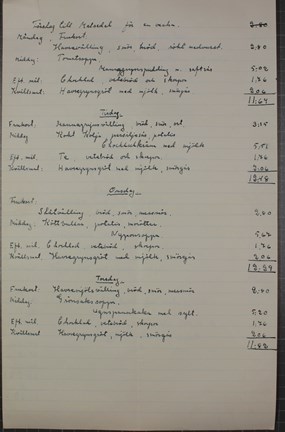 Förslag till Matsedel för en vecka.
Måndag. Frukost.
Havrevälling, smör, bröd, rökt medwurst. 2.80
Middag: Tomatsoppa
Mannagrynspudding m. saftsås 5.02
Eft. mid. Choklad vetebröd och skorpor 1.76
Kvällsmat: Havregrynsgröt med mjölk, smörgås 2.06
11.64
Tisdag.
Frukost: Mannagrynsvälling bröd, smör, ost.
Middag Kokt Kolja persiljesås potatis
Chokladkräm med mjölk
Eft. mid. Te vetebröd och skorpor. 1.76
Kvällsmat: Havregrynsgröt med mjölk, smörgås 2.06
Onsdag.
Frukost:
välling bröd, smör, 2.60
Middag: Köttbullar, potatis, morötter.
Nyponsoppa
Eft. mid. Choklad vetebröd, skorpor. 1.76
Kvällsmat. Havregrynsgröt med mjölk smörgås 2.06
Torsdag
Frukost: Havremjölsvälling, bröd, smör,
Middag: Grönsakssoppa.
Ugnspannkaka med sylt. 5.20
Eft. mid Choklad, vetebröd, skorpor 1.76
Kvällsmat Havregrynsgröt, mjölk, smörgås 2.06
11.82